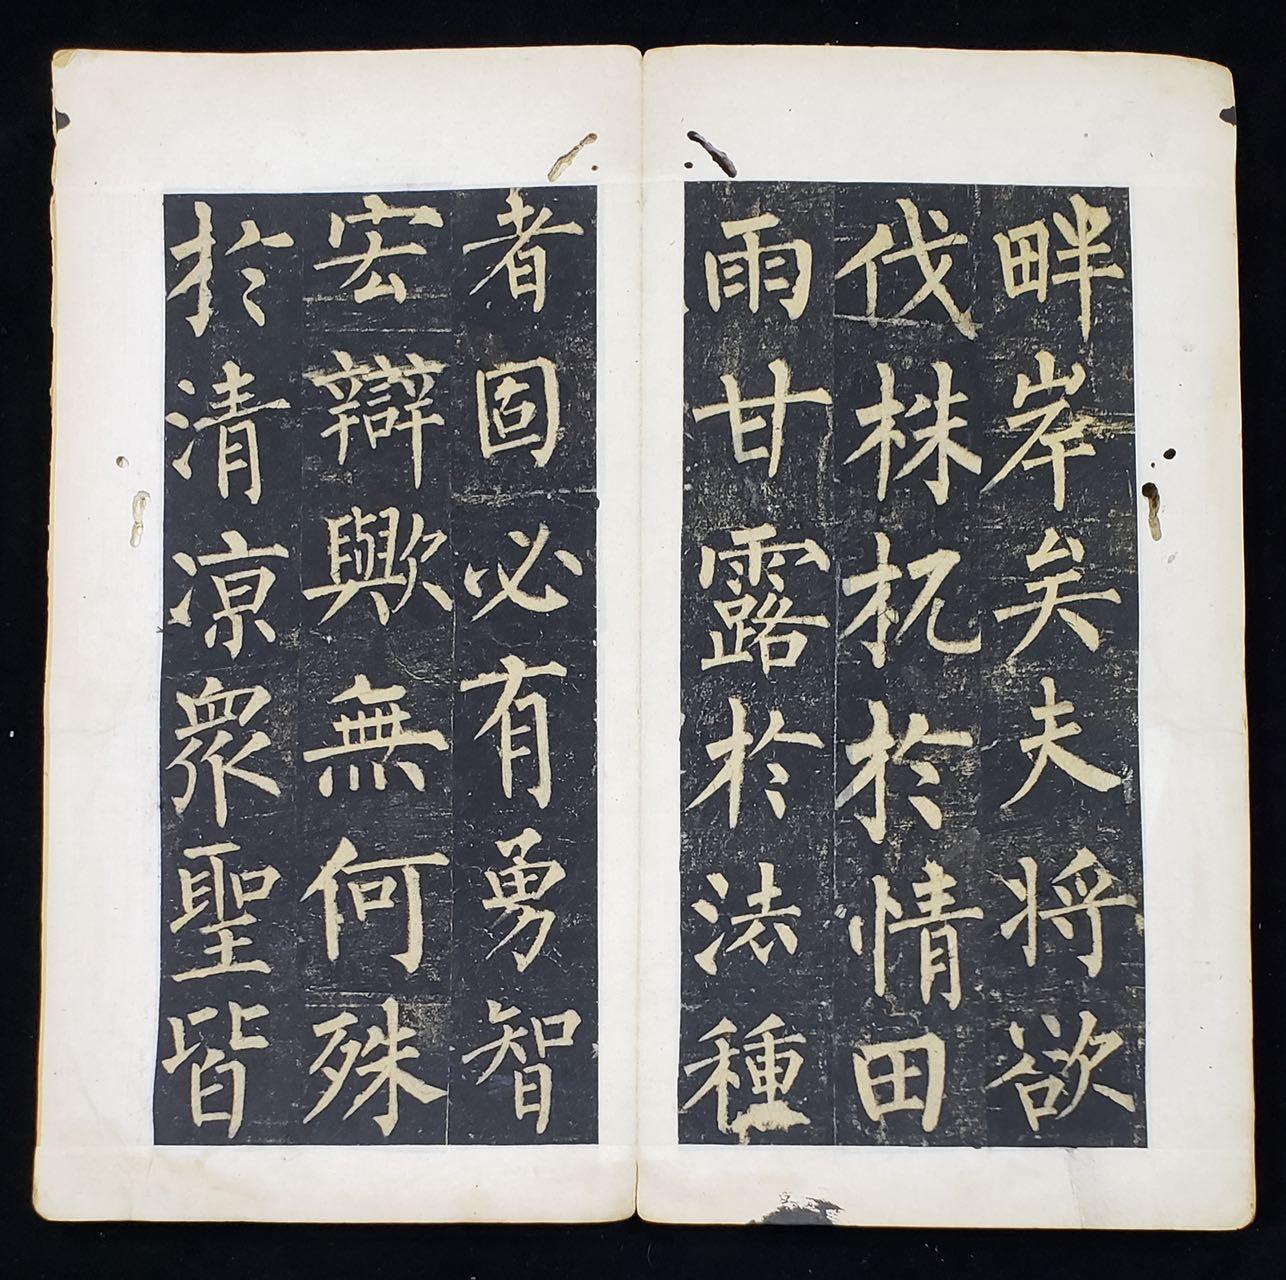 畔岸矣夫將欲
伐株杌於情田
雨甘露於法種
者固必有勇智
宏辯歟無何殊
於清涼衆聖皆